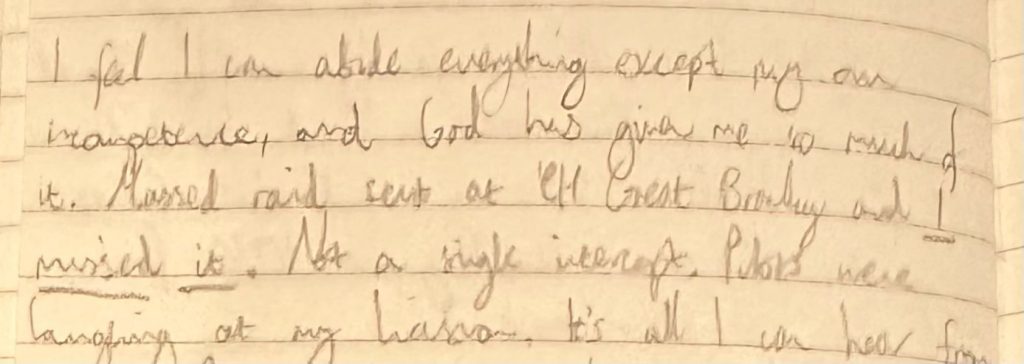 I feel I can abide everything except my own
incompetence, and God has given me so much of
it. Massed raid sent at CH Great Bromley and I
missed it. Not a single intercept. Pilots were
laughing at my liaison. It's all I can hear from